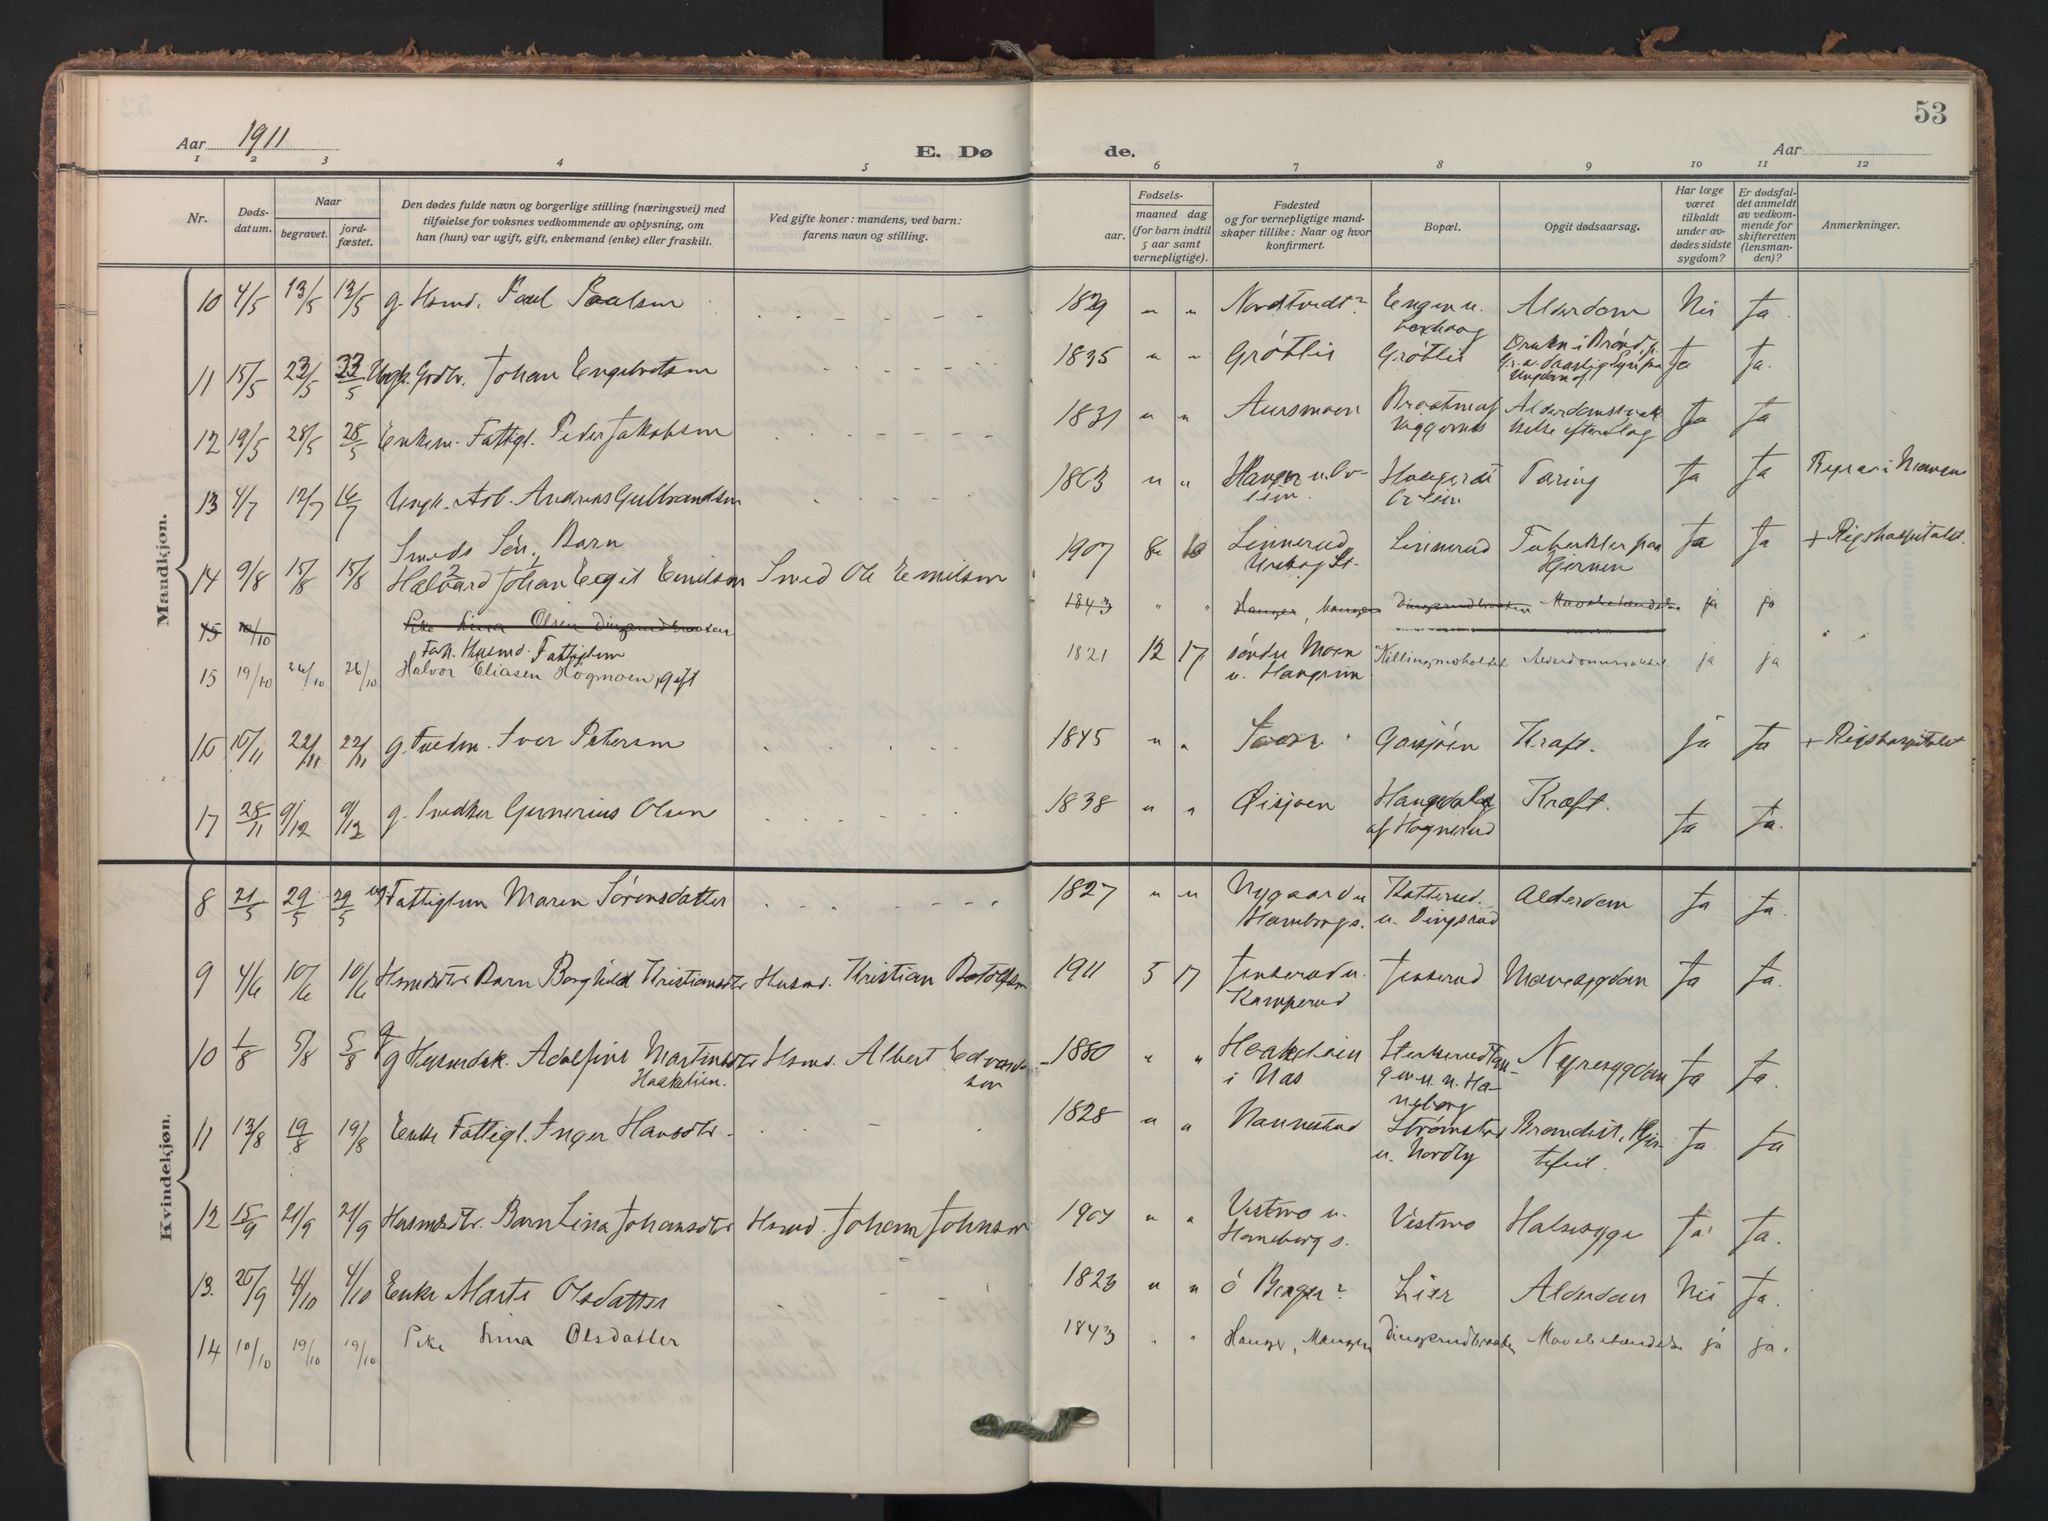 53
Aar 1911
E. Døde.
Aar
1 2 3 4 5 6 7 8 9 10 11 12
Nr.
Døds-
datum.
Naar
begravet.
jord-
fæstet.
Den dødes fulde navn og borgerlige stilling (næringsvei) med
tilføielse for voksnes vedkommende av oplysning, om
han (hun) var ugift, gift, enkemand (enke) eller fraskilt.
Ved gifte koner: mandens, ved barn:
farens navn og stilling.
Fødsels-
aar.
maaned dag
(for barn indtil
5 aar samt
vernepligtige).
Fødested
og for vernepligtige mand-
skaper tillike: Naar og hvor
konfirmert.
Bopæl.
Opgit dødsaarsag.
Har læge
været
tilkaldt
under av-
dødes sidste
sygdom?
Er dødsfal-
det anmeldt
av vedkom-
mende for
skifteretten
(lensman-
den)?
Anmerkninger.
Mandkjøn.
10 4/5 13/5 13/5 g. Hsmd. Paul Paulsen 1839 " " Nordtvedt? Engen u. Alderdom Nei Ja.
11 15/5 23/5 23/5 Ungk. Grdbr. Johan Engebretsen 1835 " " Grøtlie Grøtlie Ja Ja.
12 19/5 28/5 28/5 Enkem. Fattigl. Peder Jakobsen 1831 " " Aursmoen Ja Ja
13 4/7 12/7 16/7 Ungk. Arb. Andreas Gulbrandsen 1863 " " Tæring Ja Ja
Smeds Søn, Barn
14 9/8 15/8 15/8 Halvard Johan Egil Emilsen Smed Ole Emilsen 1907 8 10 Linnerud Linnerud Tuberkler paa Hjernen Ja Ja + Rigshospitalet.
15 10/10 Pike Lina Olsen Dingsrudbraaten 1843 " " Hanger, Mangen Dingsrudbraaten Mavebetændelse ja ja
Fattiglem
15 19/10 26/10 26/10 Halvor Eliasen Hogmoen, gift 1821 12 17 søndre Moen ja ja
16 15/11 22/11 22/11 g. Iver Petersen 1845 " " Kræft. ja Ja + Rigshospitalet
17 28/11 9/12 9/12 g. Snedker Gunerius Olsen 1838 " " Øisjøen af Hognerud Kræft. Ja Ja.
Kvindekjøn.
8 21/5 29/5 29/5 ug. Fattiglem Maren Sørensdatter 1827 " " Nygaard u Hanebergs. Kotterud u. Dingsrud Alderdom Ja Ja.
9 4/6 10/6 10/6 Hsmdsdtr Barn Borghild Kristiansdtr Husmd. Kristian 1911 5 17 Kamperud Mavesygdom Ja Ja.
10 1/8 5/8 5/8 g Husmdsk. Adolfine Martinsdtr Haakelien. Hsmd. Albert Edvardsen 1880 " " Haakelien i Nas Nyresygdom Ja Ja.
11 13/8 19/8 19/8 Enke Fattigl. Inger Hansdtr. 1828 " " Nannestad Strømstad u. Nordby Ja Ja
12 15/9 21/9 21/9 Husmdsdtr. Barn Lina Johansdtr Hsmd. Johan Johnsen 1904 " " Vestmo u. Hanebergs. Vestmo Halssyge Ja Ja.
13. 25/9 4/10 4/10 Enke Marte Olsdatter 1823 " " ó Berger? Lier Alderdom Nei Ja.
14 10/10 19/10 19/10 Pike Lina Olsdatter 1843 " " Hanger, Mangen Dingsrudbraaten Mavebetændelse já ja.